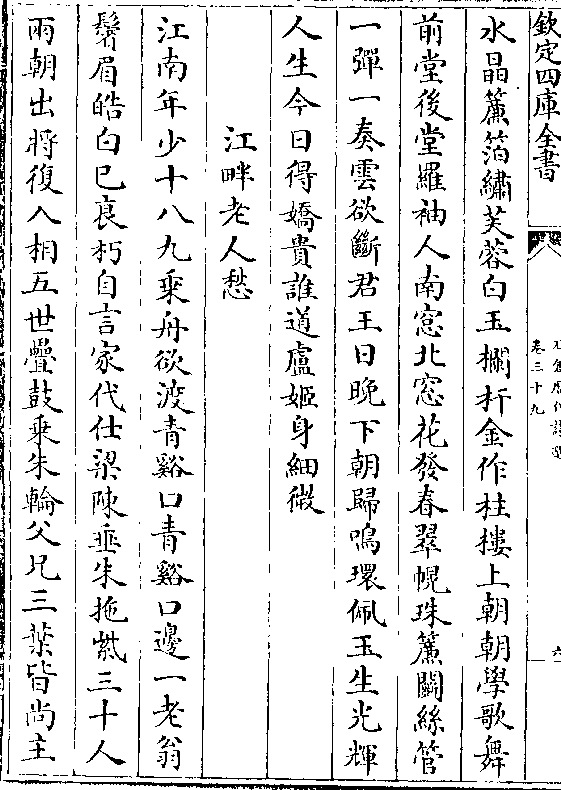 欽定四庫全書
卷三十九
水晶簾箔繡芙蓉白玉欄杆金作柱樓上朝朝學歌舞
前堂後堂羅袖人南窓北窓花發春翠幌珠簾鬭絲管
一彈一奏雲欲斷君王日晚下朝歸鳴環佩玉生光輝
人生今日得嬌貴誰道盧姬身細微
江畔老人愁
江南年少十八九乗舟欲渡青谿口青谿口邊一老翁
鬢眉皓白已衰朽自言家代仕梁陳垂朱拖紫三十人
兩朝出將復入相五世疊鼓乗朱輪父兄三葉皆尚主